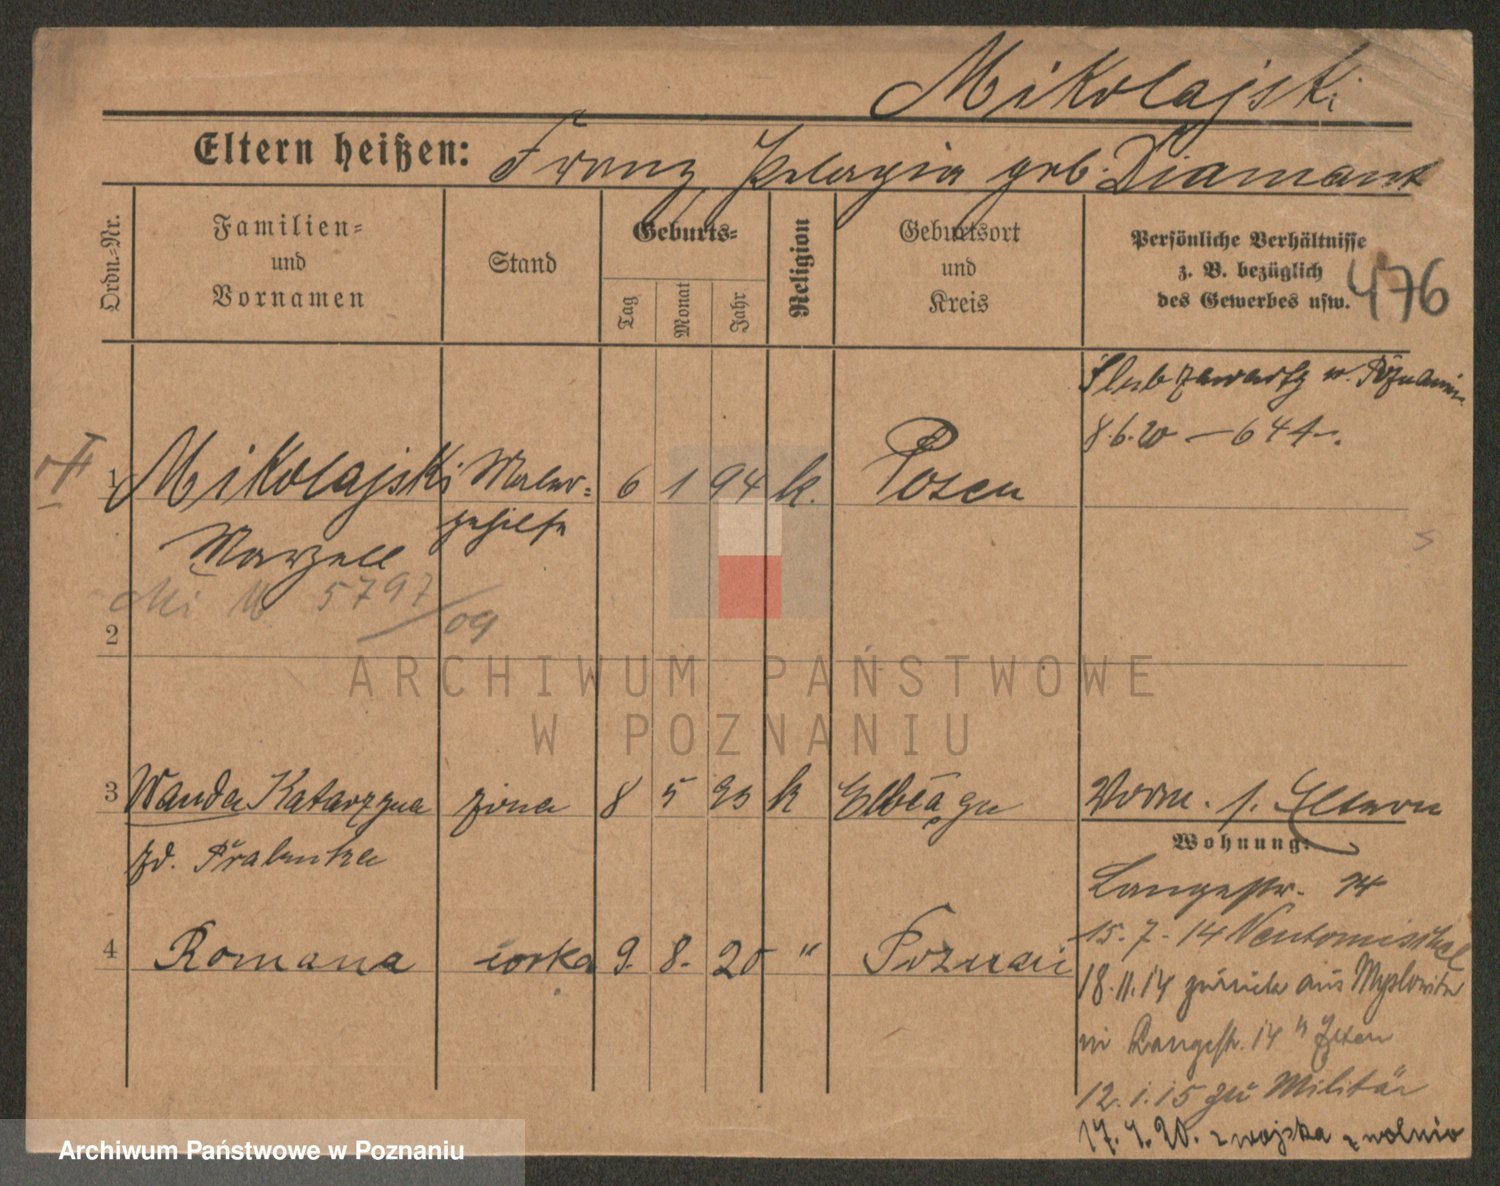 Mikolajski
Eltern heißen: Franz, Pelagia geb. Diamant
Ordn.-Nr.
Familien-
und
Vornamen
Stand
Geburts-
Tag
Monat
Jahr
Religion
Geburtsort
und
Kreis
Persönliche Verhältnisse
z. B. bezüglich
des Gewerbes usw.
476
Ślub zawarty w Poznaniu
8.6.20 — 641.
1 Mikolajski Maler- 6 1 94 k. Posen
gehilfe
Marzell
Mi M 5797/09
2
3 Wanda Katarzyna żona 8 5 93 k Elbląg Vorm. s. Eltern
zd.
Wohnung:
Langestr. 14
4 Romana córka 9. 8. 20 " Poznań
15.7.14 Neutomischel
18.11.14 zurück aus Myslowitz
in Langestr. 14 b. Eltern
12.1.15 zu Militär
17.4.20. z wojska zwolnio
ARCHIWUM PAŃSTWOWE
W POZNANIU
Archiwum Państwowe w Poznaniu